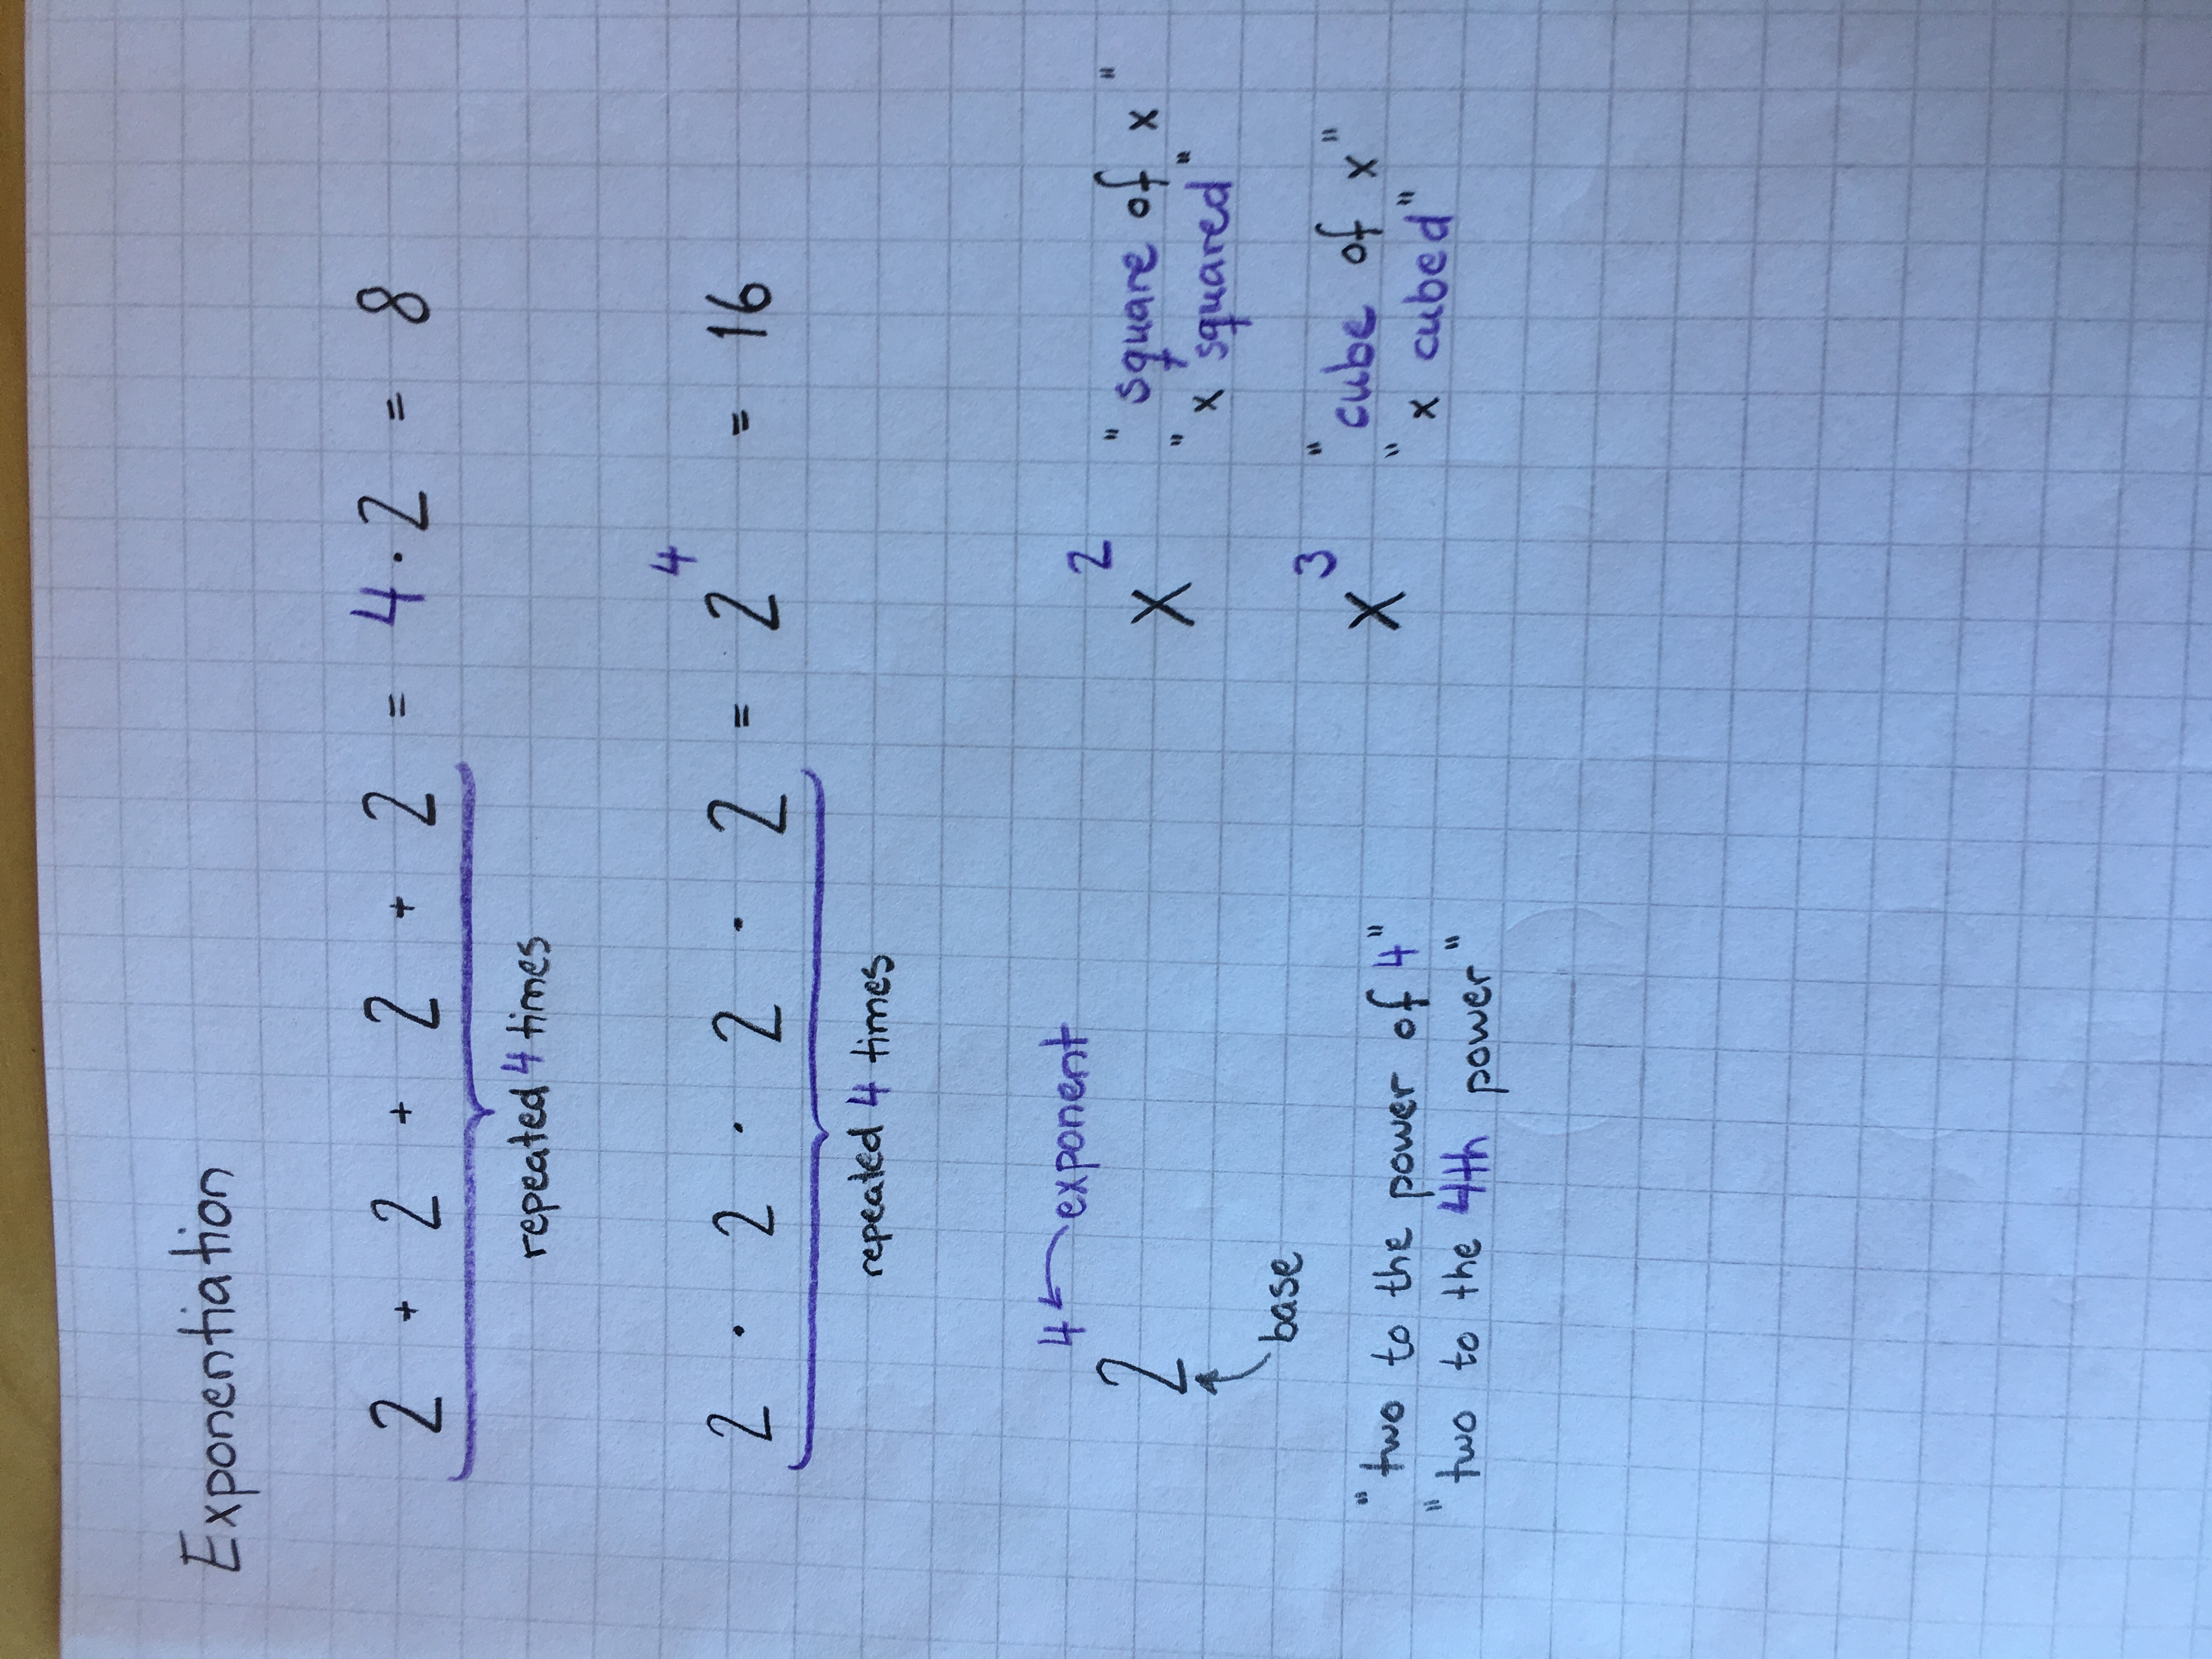 Exponentiation
2 + 2 + 2 + 2 = 4 · 2 = 8
repeated 4 times
2 · 2 · 2 · 2 = 2⁴ = 16
repeated 4 times
2⁴ exponent
base
"two to the power of 4"
"two to the 4th power"
x² "square of x"
"x squared"
x³ "cube of x"
"x cubed"